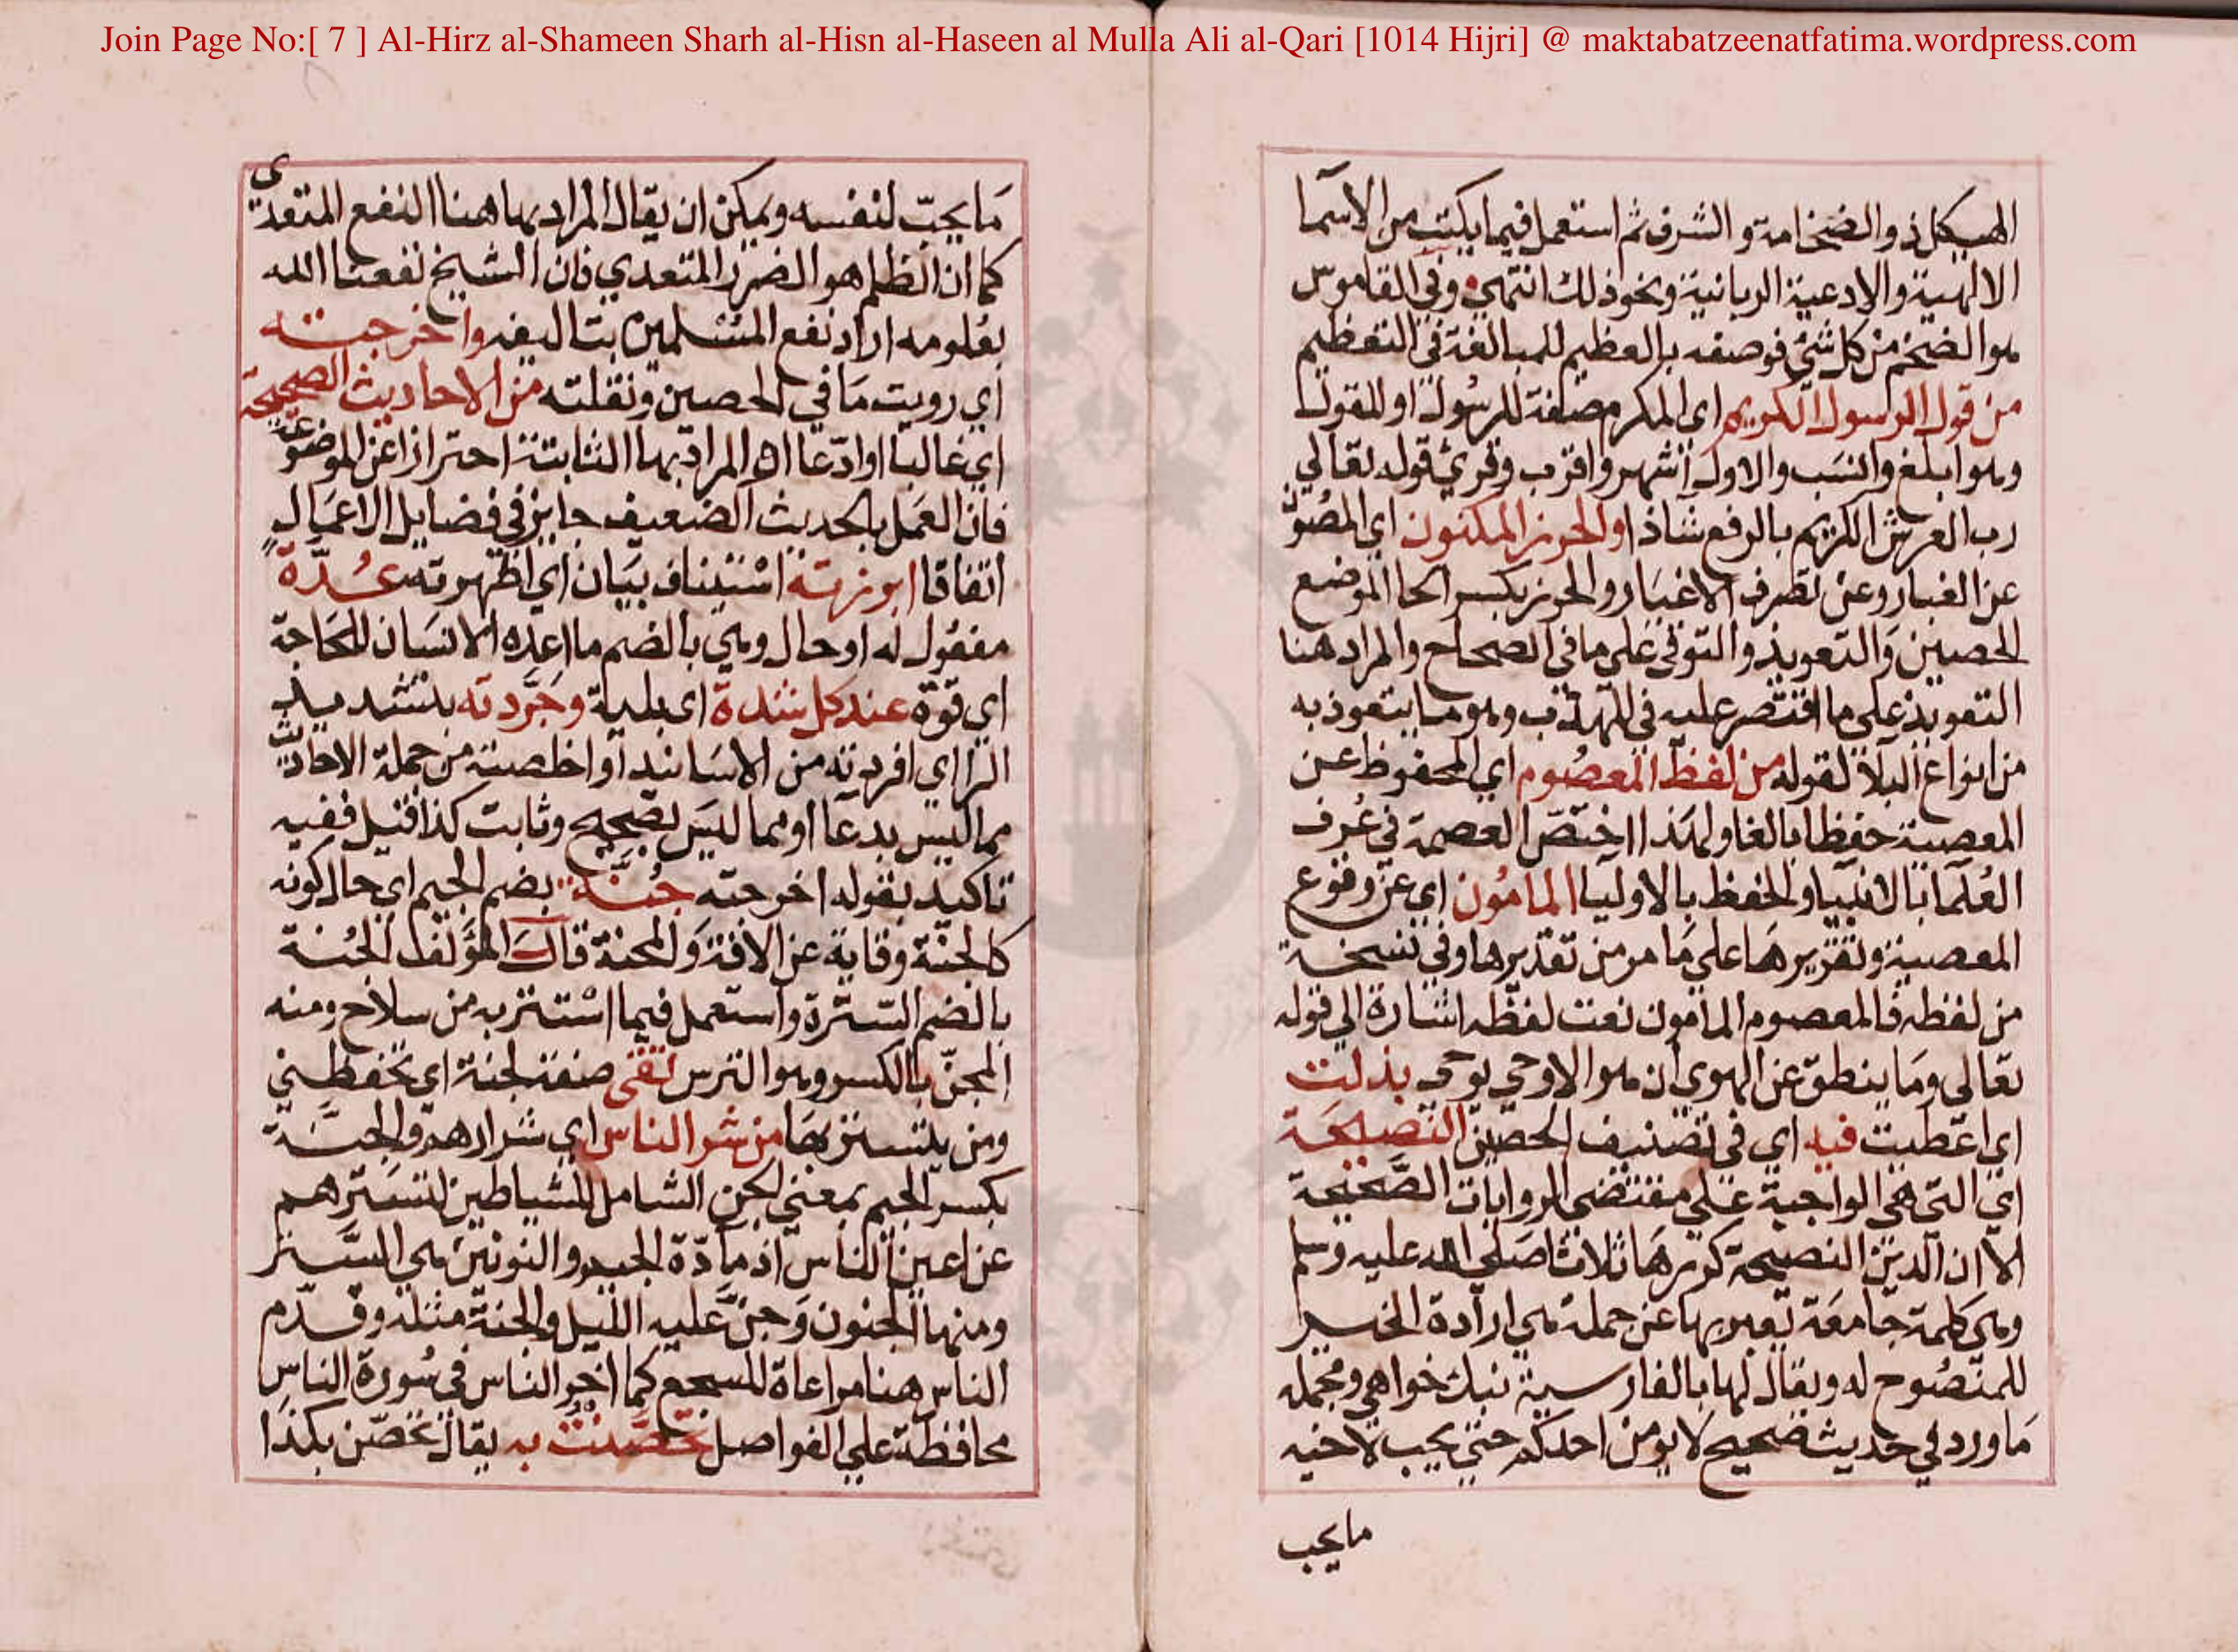 Join Page No:[ 7 ] Al-Hirz al-Shameen Sharh al-Hisn al-Haseen al Mulla Ali al-Qari [1014 Hijri] @ maktabatzeenatfatima.wordpress.com
الهيكل ذو الضخامة والشرف ثم استعمل فيما يكتب من الاسما
الالهية والادعية الربانية ونحو ذلك انتهي وفي القاموس
هوا لضخم من كل شئ فوصفه بالعظيم للمبالغة في التعظيم
من قول الرسول الكريم اي المكرم صفة للرسول او للقول
وهو ابلغ وانسب والاول اشهر واقرب وقرئ قوله تعالي
رب العرش الكريم بالرفع شاذا والحرز المكنون اي المصون
عن الغبار وعن تصرف الاغيار والحرز بكسر الحا الموضع
الحصين والتعويذ والتوقي علي ما في الصحاح والمراد هنا
التعويذ علي ما اقتصر عليه في المهذب وهو ما يتعوذ به
من انواع البلا لقوله من لفظ المعصوم اي المحفوظ عن
المعصية حفظا بالغا ولهذا اختص العصمة في عرف
العلما بالانبيا والحفظ بالاوليا المامون اي عن وقوع
المعصية وتقريرها علي ما مر من تقديرها وفي نسخة
من لفظه فالمعصوم المامون نعت لفظه اشارة الي قوله
تعالي وما ينطق عن الهوي ان هو الا وحي يوحي بذلت
اي اعطيت فيه اي في تصنيف الحصين النصيحة
اي التي هي الواجبة علي مقتضي الروايات الصحيحة
الا ان الدين النصيحة كررها ثلاثا صلي الله عليه وسلم
وهي كلمة جامعة يعبر بها عن جملة هي ارادة الخير
للمنصوح له ويقال لها بالفارسية نيك خواهي ومجمله
ما ورد في حديث صحيح لا يومن احدكم حتي يحب لاخيه
ما يحب
ما يحب لنفسه ويمكن ان يقال المراد بها هنا النفع المتعدي
كما ان الظلم هو الضرر المتعدي فان الشيخ نفعنا الله
بعلومه اراد نفع المسلمين بتاليفه واخرجته
اي رويت ما في الحصين ونقلته من الاحاديث الصحيحة
اي غالبا او ادعا او المراد بها الثابتة احترازا عن الموضوعة
فان العمل بالحديث الضعيف جايز في فضايل الاعمال
اتفاقا ابرزته استيناف بيان اي اظهرته عدة
مفعول له او حال وهي بالضم ما اعده الانسان للحاجة
اي قوة عند كل شدة اي بلية وجردته بتشديد
الرا اي افردته من الاسانيد او اخلصته من جملة الاحاديث
مما ليس بدعا او مما ليس بصحيح وثابت كذا قيل ففيه
تاكيد بقوله اخرجته جنة بضم الجيم اي حال كونه
كالجنة وقاية عن الافة والمحنة قال المؤلف الجنة
بالضم السترة واستعمل فيما استتر به من سلاح ومنه
المجن بالكسر وهو الترس تقي صفة لجنة اي تحفظني
ومن يتستر بها من شر الناس اي شرارهم والجنة
بكسر الجيم بمعني الجن الشامل للشياطين لتسترهم
عن اعين الناس اذ مادة الجيم والنونين هي الستر
ومنها الجنون وجن عليه الليل والجنة مثله وقدم
الناس هنا مراعاة للسجع كما اخر الناس في سورة الناس
محافظة علي الفواصل تحصنت به يقال تحصن بكذا